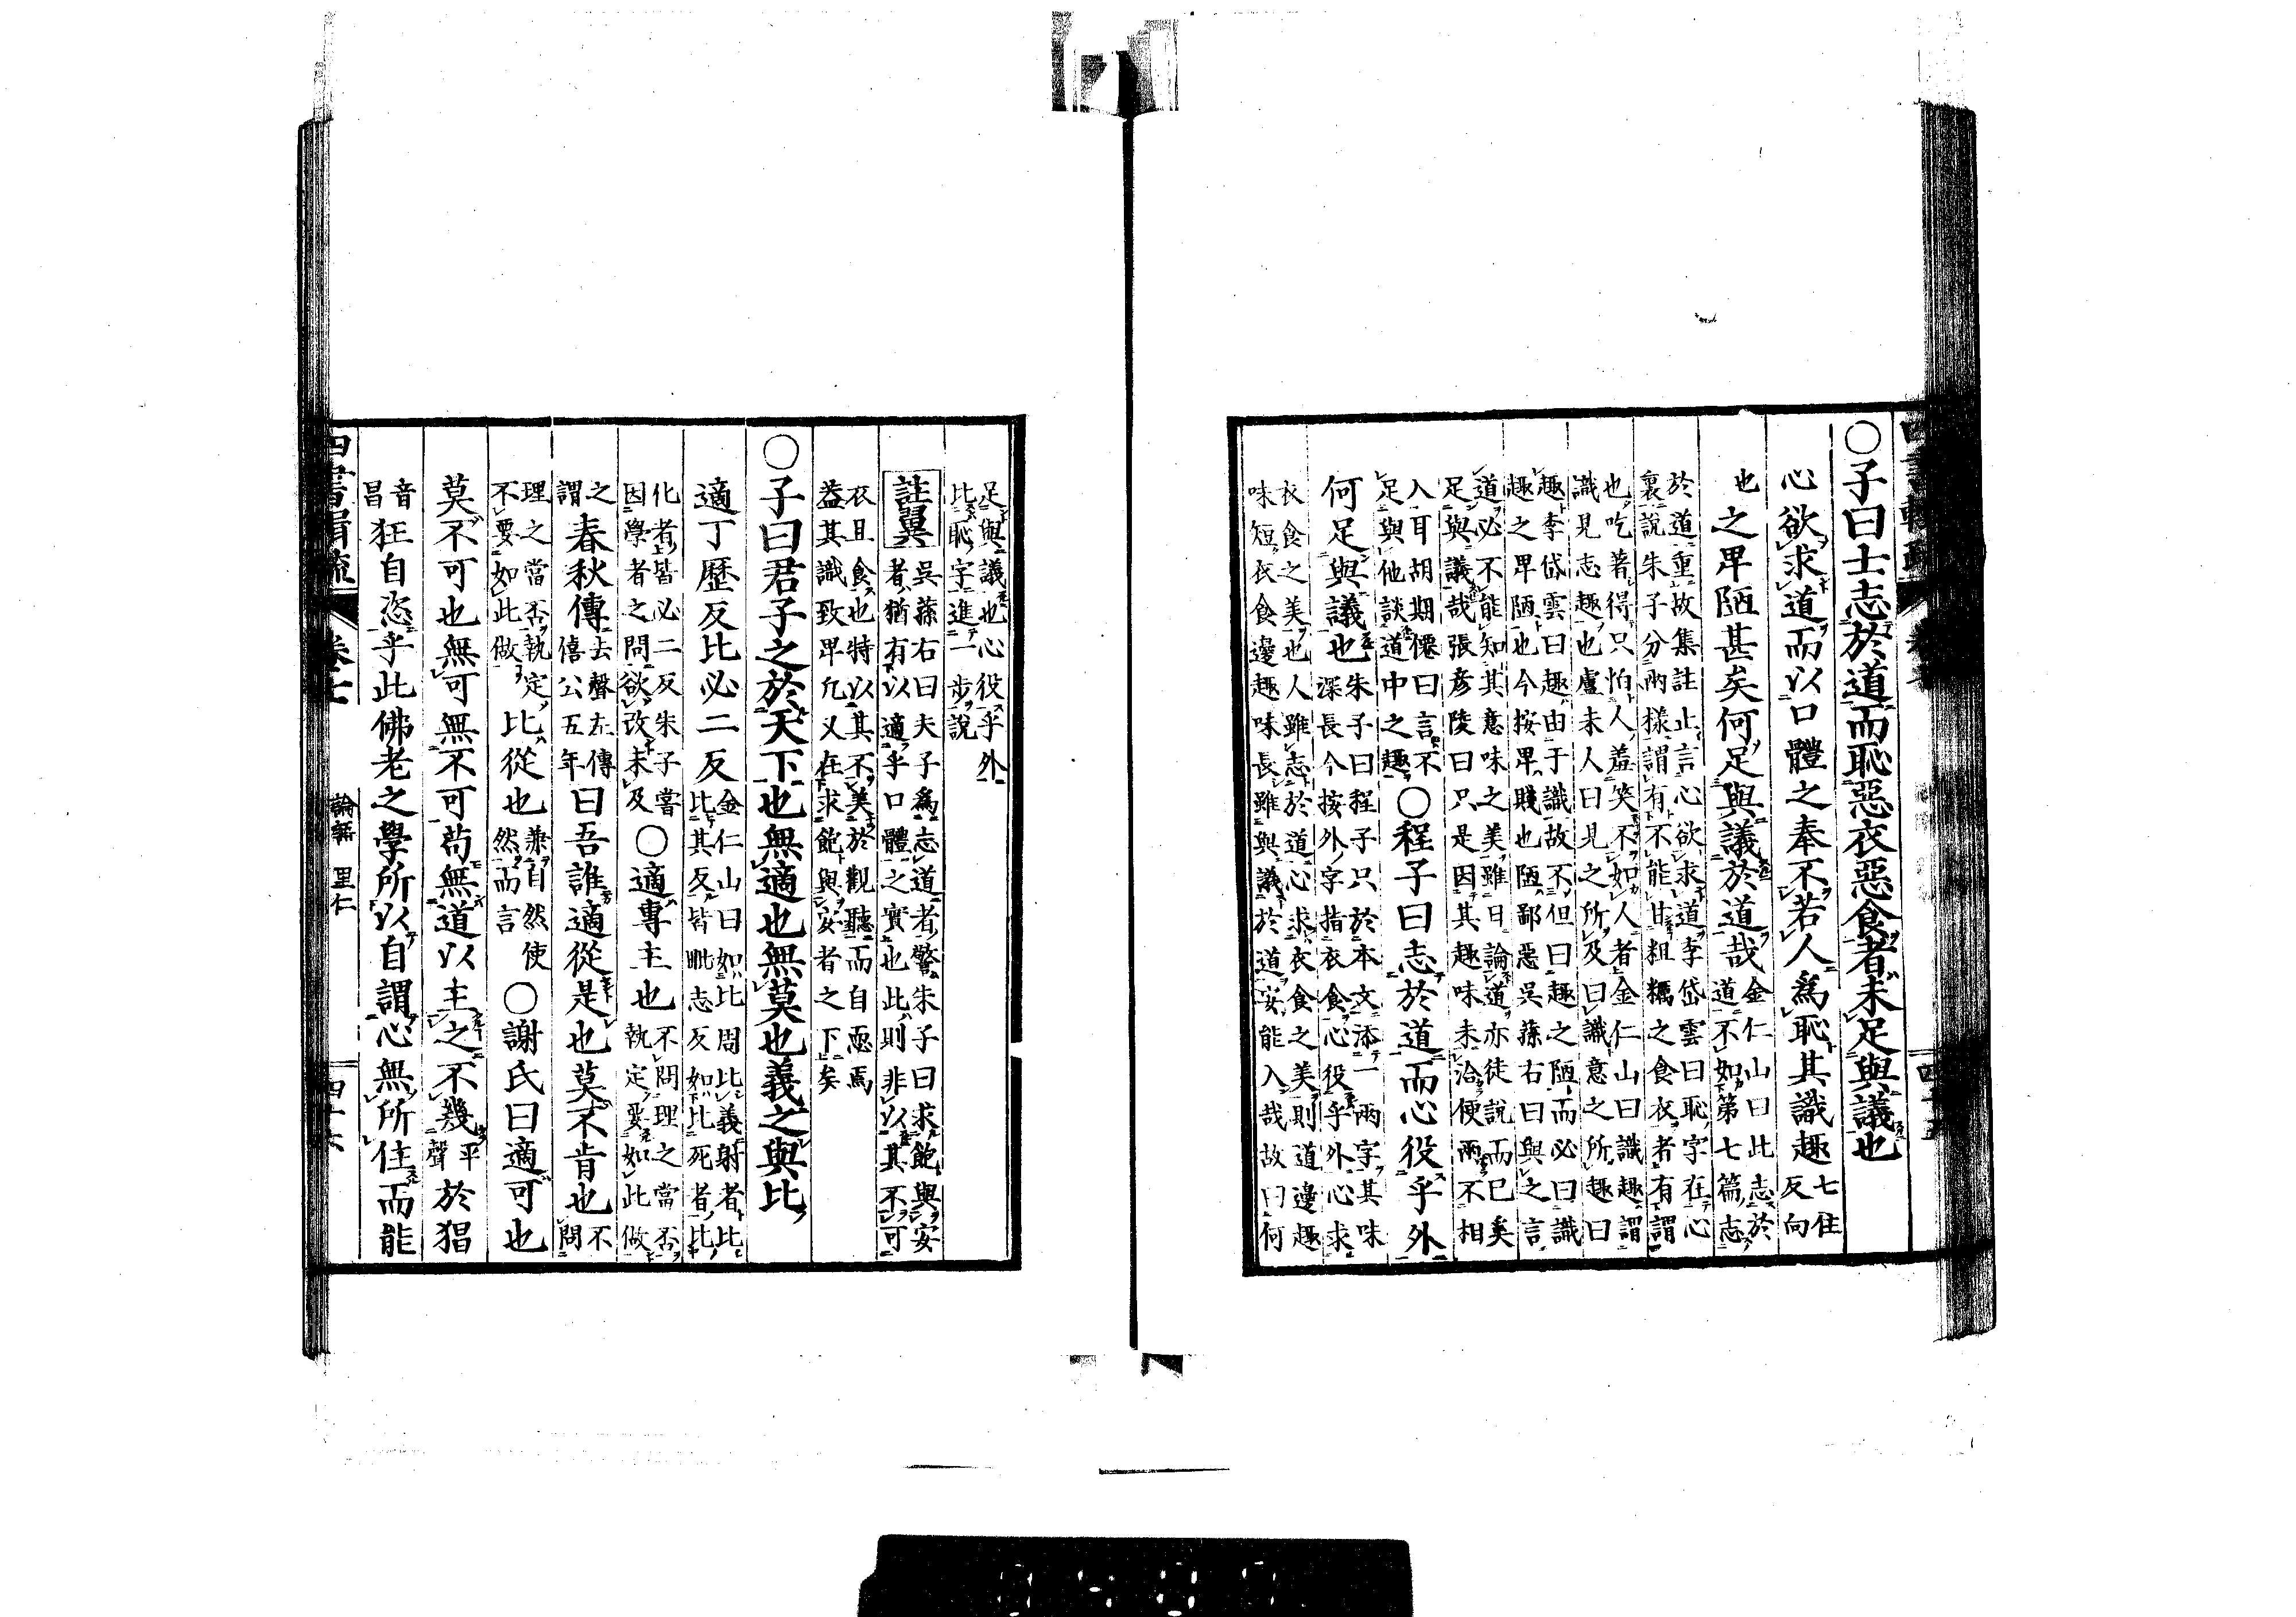 ○子曰士志於道而恥惡衣惡食者未足與議也
心欲求道而以口體之奉不若人為恥其識趣七住反向
也之卑陋甚矣何足與議於道哉金仁山曰此志於道不如第七篇志
於道重故集註止言心欲求道李岱雲曰恥字在心
裏說朱子分兩樣謂有不能甘粗糲之食衣者有謂
也吃著得只怕人羞笑不如人者金仁山曰識趣謂
識見志趣也盧未人曰見之所及曰識意之所趣曰
趣李岱雲曰趣由于識故不但曰趣之陋而必曰識
趣之卑陋也今按卑賤也陋鄙惡吳蓀右曰與之言
道必不能知其意味之美雖日論道亦徒說而已奚
足與議哉張彥陵曰只是因其趣味未洽便兩不相
入耳胡期僊曰言不
足與他談道中之趣○程子曰志於道而心役乎外
何足與議也朱子曰程子只於本文添一兩字其味
深長今按外字指衣食心役乎外心求
衣食之美也人雖志於道心求衣食之美則道邊趣
味短衣食邊趣味長雖與議於道安能入哉故曰何
四書輯疏
足與議也心役乎外
比恥字進一步說
註翼吳蓀右曰夫子為志道者警朱子曰求飽與安
者猶有以適乎口體之實也此則非以其不可
衣且食也特以其不美於觀聽而自恧焉
益其識致卑凡又在求飽與安者之下矣
○子曰君子之於天下也無適也無莫也義之與比
適丁歷反比必二反金仁山曰如比周比義射者比
比其反皆毗志反如比死者比
化者皆必二反朱子嘗
因學者之問欲改未及○適專主也不問理之當否
執定要如此做
之謂春秋傳去聲左傳僖公五年曰吾誰適從是也莫不肯也不問
理之當否執定
不要如此做比從也兼自然使
然而言○謝氏曰適可也
莫不可也無可無不可苟無道以主之不幾平聲於猖
音昌狂自恣乎此佛老之學所以自謂心無所住而能
四書輯疏 卷七 論語 里仁 四十六